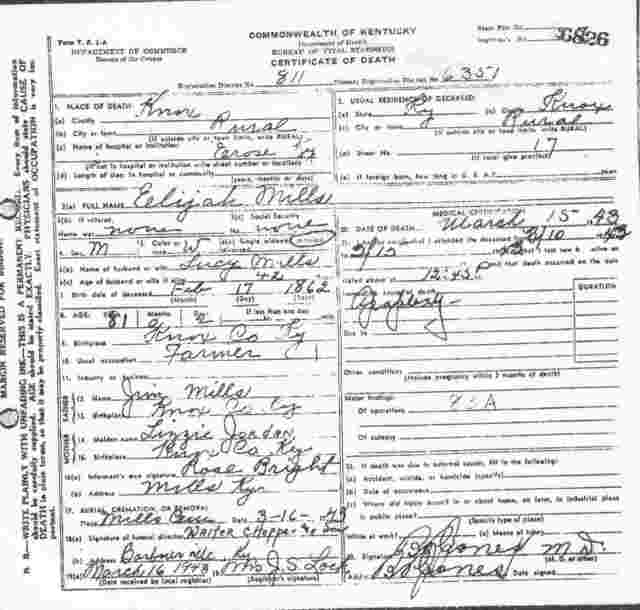 COMMONWEALTH OF KENTUCKY
Form V. S. 1-A
DEPARTMENT OF COMMERCE
Bureau of the Census
Department of Health
BUREAU OF VITAL STATISTICS
CERTIFICATE OF DEATH
State File No.
Registrar's No. 6826
Registration District No. 811
Primary Registration District No. 6351
1. PLACE OF DEATH: Knox
(a) County
(b) City or town Rural
(If outside city or town limits, write RURAL)
(c) Name of hospital or institution:
(If not in hospital or institution write street number or location)
(d) Length of stay: In hospital or community
(years, months or days)
2. USUAL RESIDENCE OF DECEASED:
(a) State Ky (b) County Knox
(c) City or town Rural
(If outside city or town limits, write RURAL)
(d) Street No. 17
(If rural give precinct)
(e) If foreign born, how long in U. S. A.?
3(a) FULL NAME Eelijah Mills
3(b) If veteran, Name war none
3(c) Social Security No. none
4. Sex M 5. Color or race W 6(a) Single, widowed
6(b) Name of husband or wife Lucy Mills
6(c) Age of husband or wife if alive 42
7. Birth date of deceased Feb 17 1862
(Month) (Day) (Year)
8. AGE: Years 81 Months Days 2 If less than one day
9. Birthplace Knox Co Ky
10. Usual occupation Farmer
11. Industry or business
FATHER
12. Name Jim Mills
13. Birthplace Knox Co Ky
MOTHER
14. Maiden name Linzie Jordan
15. Birthplace Knox Co Ky
16(a) Informant's own signature Rose Bright
(b) Address Mills Ky
17. BURIAL, CREMATION, OR REMOVAL
Place Mills Cem Date 3-16-43
18(a) Signature of funeral director Walter Chopper
(b) Address Barbourville Ky
19(a) March 16 1943 (b) Mrs J.S. Lock
(Date received by local registrar) (Registrar's signature)
MEDICAL CERTIFICATION
20. DATE OF DEATH March 15-43
21. I hereby certify that I attended the deceased from 3/10 43
3/15 that I last saw h alive on
and that death occurred on the date
stated above at 12:45 P
DURATION
Due to
Other condition
(Include pregnancy within 3 months of death)
Major findings:
Of operations 83A
Of autopsy
22. If death was due to external causes, fill in the following:
(a) Accident, suicide, or homicide (specify)
(b) Date of occurrence
(c) Where did injury occur? in or about home, on farm, in industrial place
in public place?
(Specify type of place)
While at work? (e) Means of injury
23. Signature BO Jones M.D.
(M. D. or other)
Address BO Jones
MARGIN RESERVED FOR BINDING
N. B.—WRITE PLAINLY WITH UNFADING INK—THIS IS A PERMANENT RECORD. Every item of information
should be carefully supplied. AGE should be stated EXACTLY. PHYSICIANS should state CAUSE OF
DEATH in plain terms, so that it may be properly classified. Exact statement of OCCUPATION is very important.